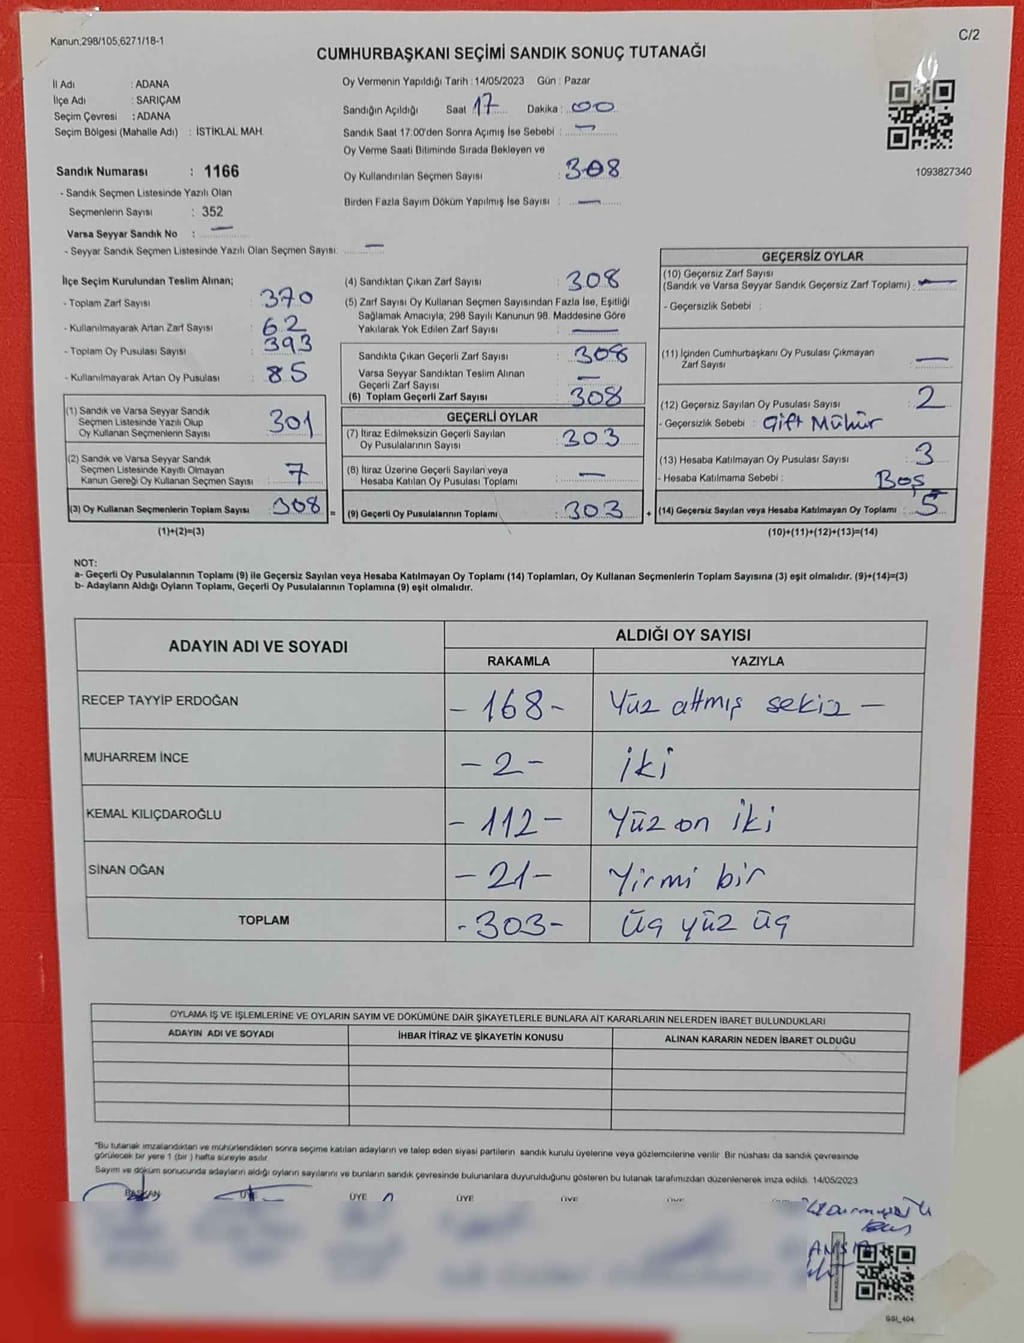 Kanun,298/105,6271/18-1
C/2
CUMHURBAŞKANI SEÇİMİ SANDIK SONUÇ TUTANAĞI
İl Adı : ADANA
İlçe Adı : SARIÇAM
Seçim Çevresi : ADANA
Seçim Bölgesi (Mahalle Adı) : İSTİKLAL MAH.
Oy Vermenin Yapıldığı Tarih : 14/05/2023 Gün : Pazar
Sandığın Açıldığı Saat 17 Dakika : 00
Sandık Saat 17:00'den Sonra Açımış İse Sebebi : —
Oy Verme Saati Bitiminde Sırada Bekleyen ve
Oy Kullandırılan Seçmen Sayısı : 308
Birden Fazla Sayım Döküm Yapılmış İse Sayısı : —
1093827340
Sandık Numarası : 1166
- Sandık Seçmen Listesinde Yazılı Olan
Seçmenlerin Sayısı : 352
Varsa Seyyar Sandık No : —
- Seyyar Sandık Seçmen Listesinde Yazılı Olan Seçmen Sayısı: —
İlçe Seçim Kurulundan Teslim Alınan;
- Toplam Zarf Sayısı : 370
- Kullanılmayarak Artan Zarf Sayısı : 62
- Toplam Oy Pusulası Sayısı : 393
- Kullanılmayarak Artan Oy Pusulası : 85
(1) Sandık ve Varsa Seyyar Sandık
Seçmen Listesinde Yazılı Olup
Oy Kullanan Seçmenlerin Sayısı : 301
(2) Sandık ve Varsa Seyyar Sandık
Seçmen Listesinde Kayıtlı Olmayan
Kanun Gereği Oy Kullanan Seçmen Sayısı : 7
(3) Oy Kullanan Seçmenlerin Toplam Sayısı : 308 =
(1)+(2)=(3)
(4) Sandıktan Çıkan Zarf Sayısı : 308
(5) Zarf Sayısı Oy Kullanan Seçmen Sayısından Fazla İse, Eşitliği
Sağlamak Amacıyla; 298 Sayılı Kanunun 98. Maddesine Göre
Yakılarak Yok Edilen Zarf Sayısı : —
Sandıkta Çıkan Geçerli Zarf Sayısı : 308
Varsa Seyyar Sandıktan Teslim Alınan
Geçerli Zarf Sayısı : —
(6) Toplam Geçerli Zarf Sayısı : 308
GEÇERLİ OYLAR
(7) İtiraz Edilmeksizin Geçerli Sayılan
Oy Pusulalarının Sayısı : 303
(8) İtiraz Üzerine Geçerli Sayılan veya
Hesaba Katılan Oy Pusulası Toplamı : —
(9) Geçerli Oy Pusulalarının Toplamı : 303 +
GEÇERSİZ OYLAR
(10) Geçersiz Zarf Sayısı
(Sandık ve Varsa Seyyar Sandık Geçersiz Zarf Toplamı) : —
- Geçersizlik Sebebi :
(11) İçinden Cumhurbaşkanı Oy Pusulası Çıkmayan
Zarf Sayısı : —
(12) Geçersiz Sayılan Oy Pusulası Sayısı : 2
- Geçersizlik Sebebi : Çift Mühür
(13) Hesaba Katılmayan Oy Pusulası Sayısı : 3
- Hesaba Katılmama Sebebi : Boş
(14) Geçersiz Sayılan veya Hesaba Katılmayan Oy Toplamı : 5
(10)+(11)+(12)+(13)=(14)
NOT:
a- Geçerli Oy Pusulalarının Toplamı (9) ile Geçersiz Sayılan veya Hesaba Katılmayan Oy Toplamı (14) Toplamları, Oy Kullanan Seçmenlerin Toplam Sayısına (3) eşit olmalıdır. (9)+(14)=(3)
b- Adayların Aldığı Oyların Toplamı, Geçerli Oy Pusulalarının Toplamına (9) eşit olmalıdır.
ADAYIN ADI VE SOYADI
ALDIĞI OY SAYISI
RAKAMLA YAZIYLA
RECEP TAYYİP ERDOĞAN - 168 - Yüz altmış sekiz —
MUHARREM İNCE - 2 - iki
KEMAL KILIÇDAROĞLU - 112 - Yüz on iki
SİNAN OĞAN - 21 - Yirmi bir
TOPLAM - 303 - Üç yüz üç
OYLAMA İŞ VE İŞLEMLERİNE VE OYLARIN SAYIM VE DÖKÜMÜNE DAİR ŞİKAYETLERLE BUNLARA AİT KARARLARIN NELERDEN İBARET BULUNDUKLARI
ADAYIN ADI VE SOYADI İHBAR İTİRAZ VE ŞİKAYETİN KONUSU ALINAN KARARIN NEDEN İBARET OLDUĞU
*Bu tutanak imzalandıktan ve mühürlendikten sonra seçime katılan adayların ve talep eden siyasi partilerin sandık kurulu üyelerine veya gözlemcilerine verilir. Bir nüshası da sandık çevresinde
görülecek bir yere 1 (bir) hafta süreyle asılır.
Sayım ve döküm sonucunda adayların aldığı oyların sayılarını ve bunların sandık çevresinde bulunanlara duyurulduğunu gösteren bu tutanak tarafımızdan düzenlenerek imza edildi. 14/05/2023
BAŞKAN ÜYE ÜYE ÜYE ÜYE